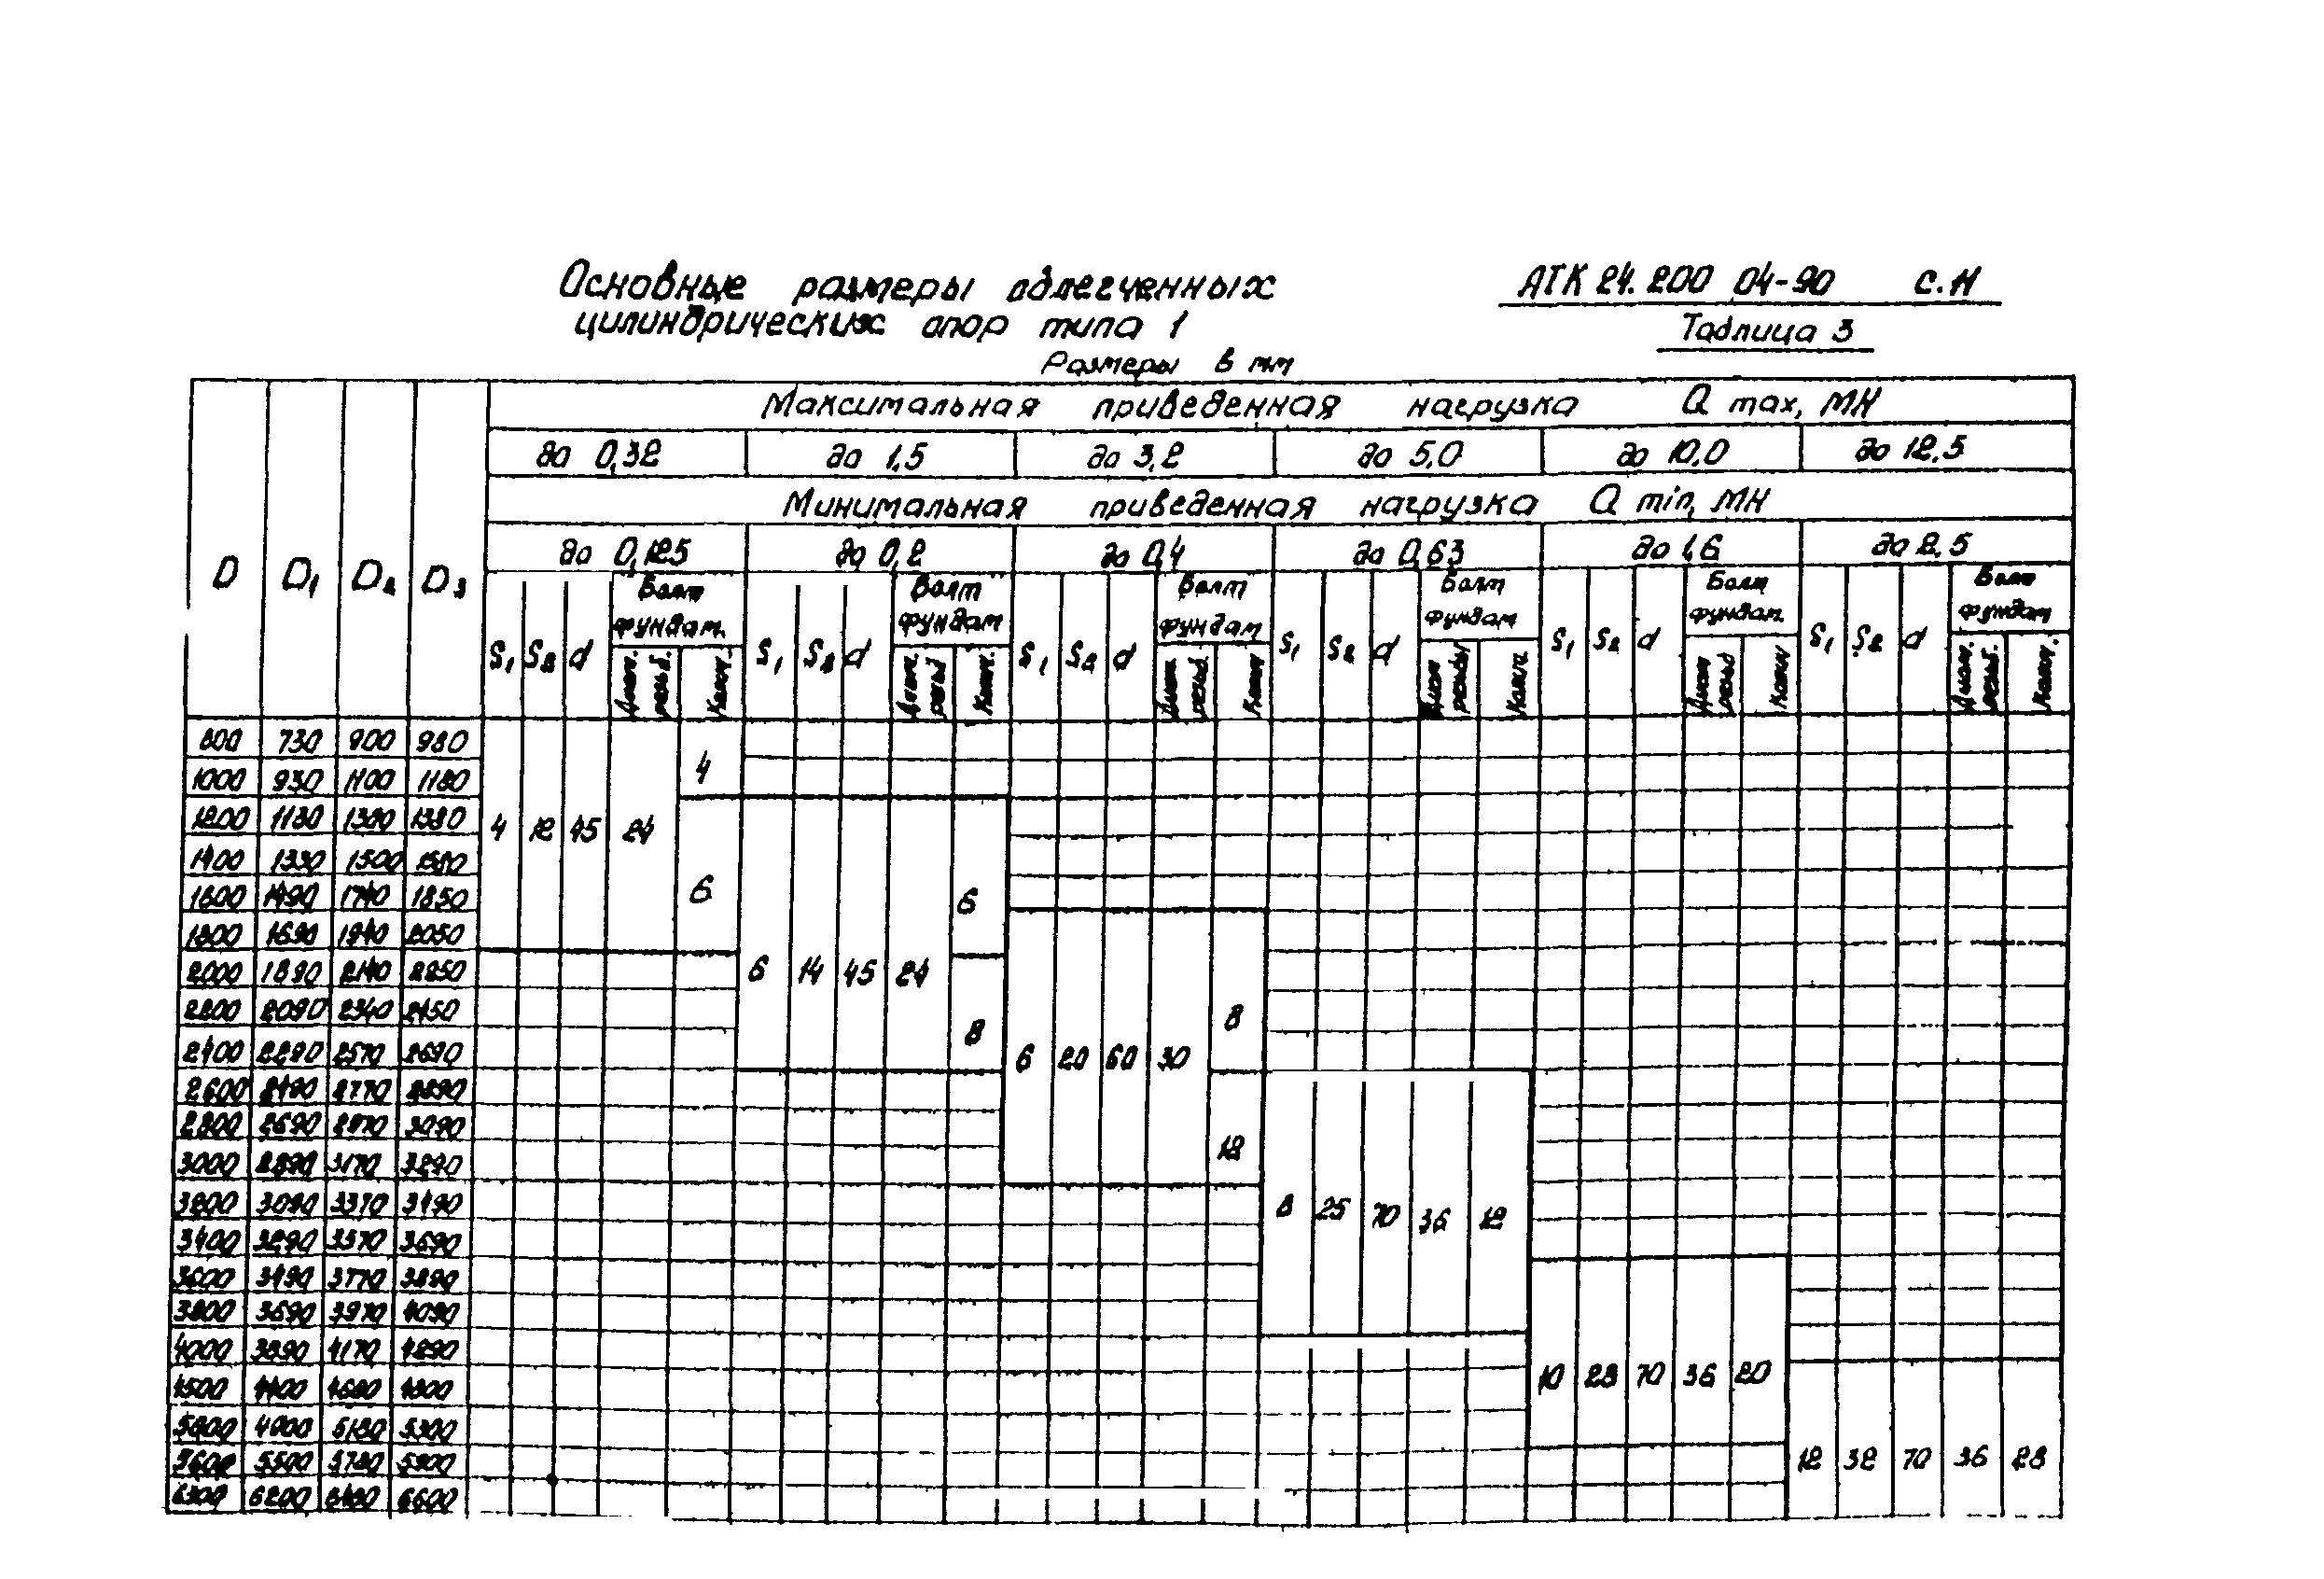 Основные размеры облегченных
цилиндрических опор типа 1
АТК 24.200 04-90 С.11
Таблица 3
Размеры в мм
D D1 D2 D3 Максимальная приведенная нагрузка Q max, МН
до 0,32 до 1,5 до 3,2 до 5,0 до 10,0 до 12,5
Минимальная приведенная нагрузка Q min, МН
до 0,125 до 0,2 до 0,4 до 0,63 до 1,6 до 2,5
S1 S2 d Болт фундам. S1 S2 d Болт фундам S1 S2 d Болт фундам S1 S2 d Болт фундам S1 S2 d Болт фундам. S1 S2 d Болт фундам
Диам. резьб. Колич. Диам. резьб Колич. Диам. резьб. Колич Диам резьбы Колич. Диам резьб Колич Диам. резьб. Колич.
800 730 900 980
4
1000 930 1100 1180
1200 1130 1300 1380
4 12 45 24
1400 1330 1500 1580
1600 1490 1740 1850
6 6
1800 1690 1940 2050
2000 1890 2140 2250
6 14 45 24
2200 2090 2340 2450
8 8
2400 2290 2570 2690
6 20 60 30
2600 2490 2770 2890
2800 2690 2970 3090
12
3000 2890 3170 3290
3200 3090 3370 3490
8 25 70 36 12
3400 3290 3570 3690
3600 3490 3770 3890
3800 3690 3970 4090
4000 3890 4170 4290
10 28 70 36 20
4500 4400 4680 4800
5000 4900 5180 5300
5600 5500 5780 5900
12 32 70 36 28
6300 6200 6480 6600